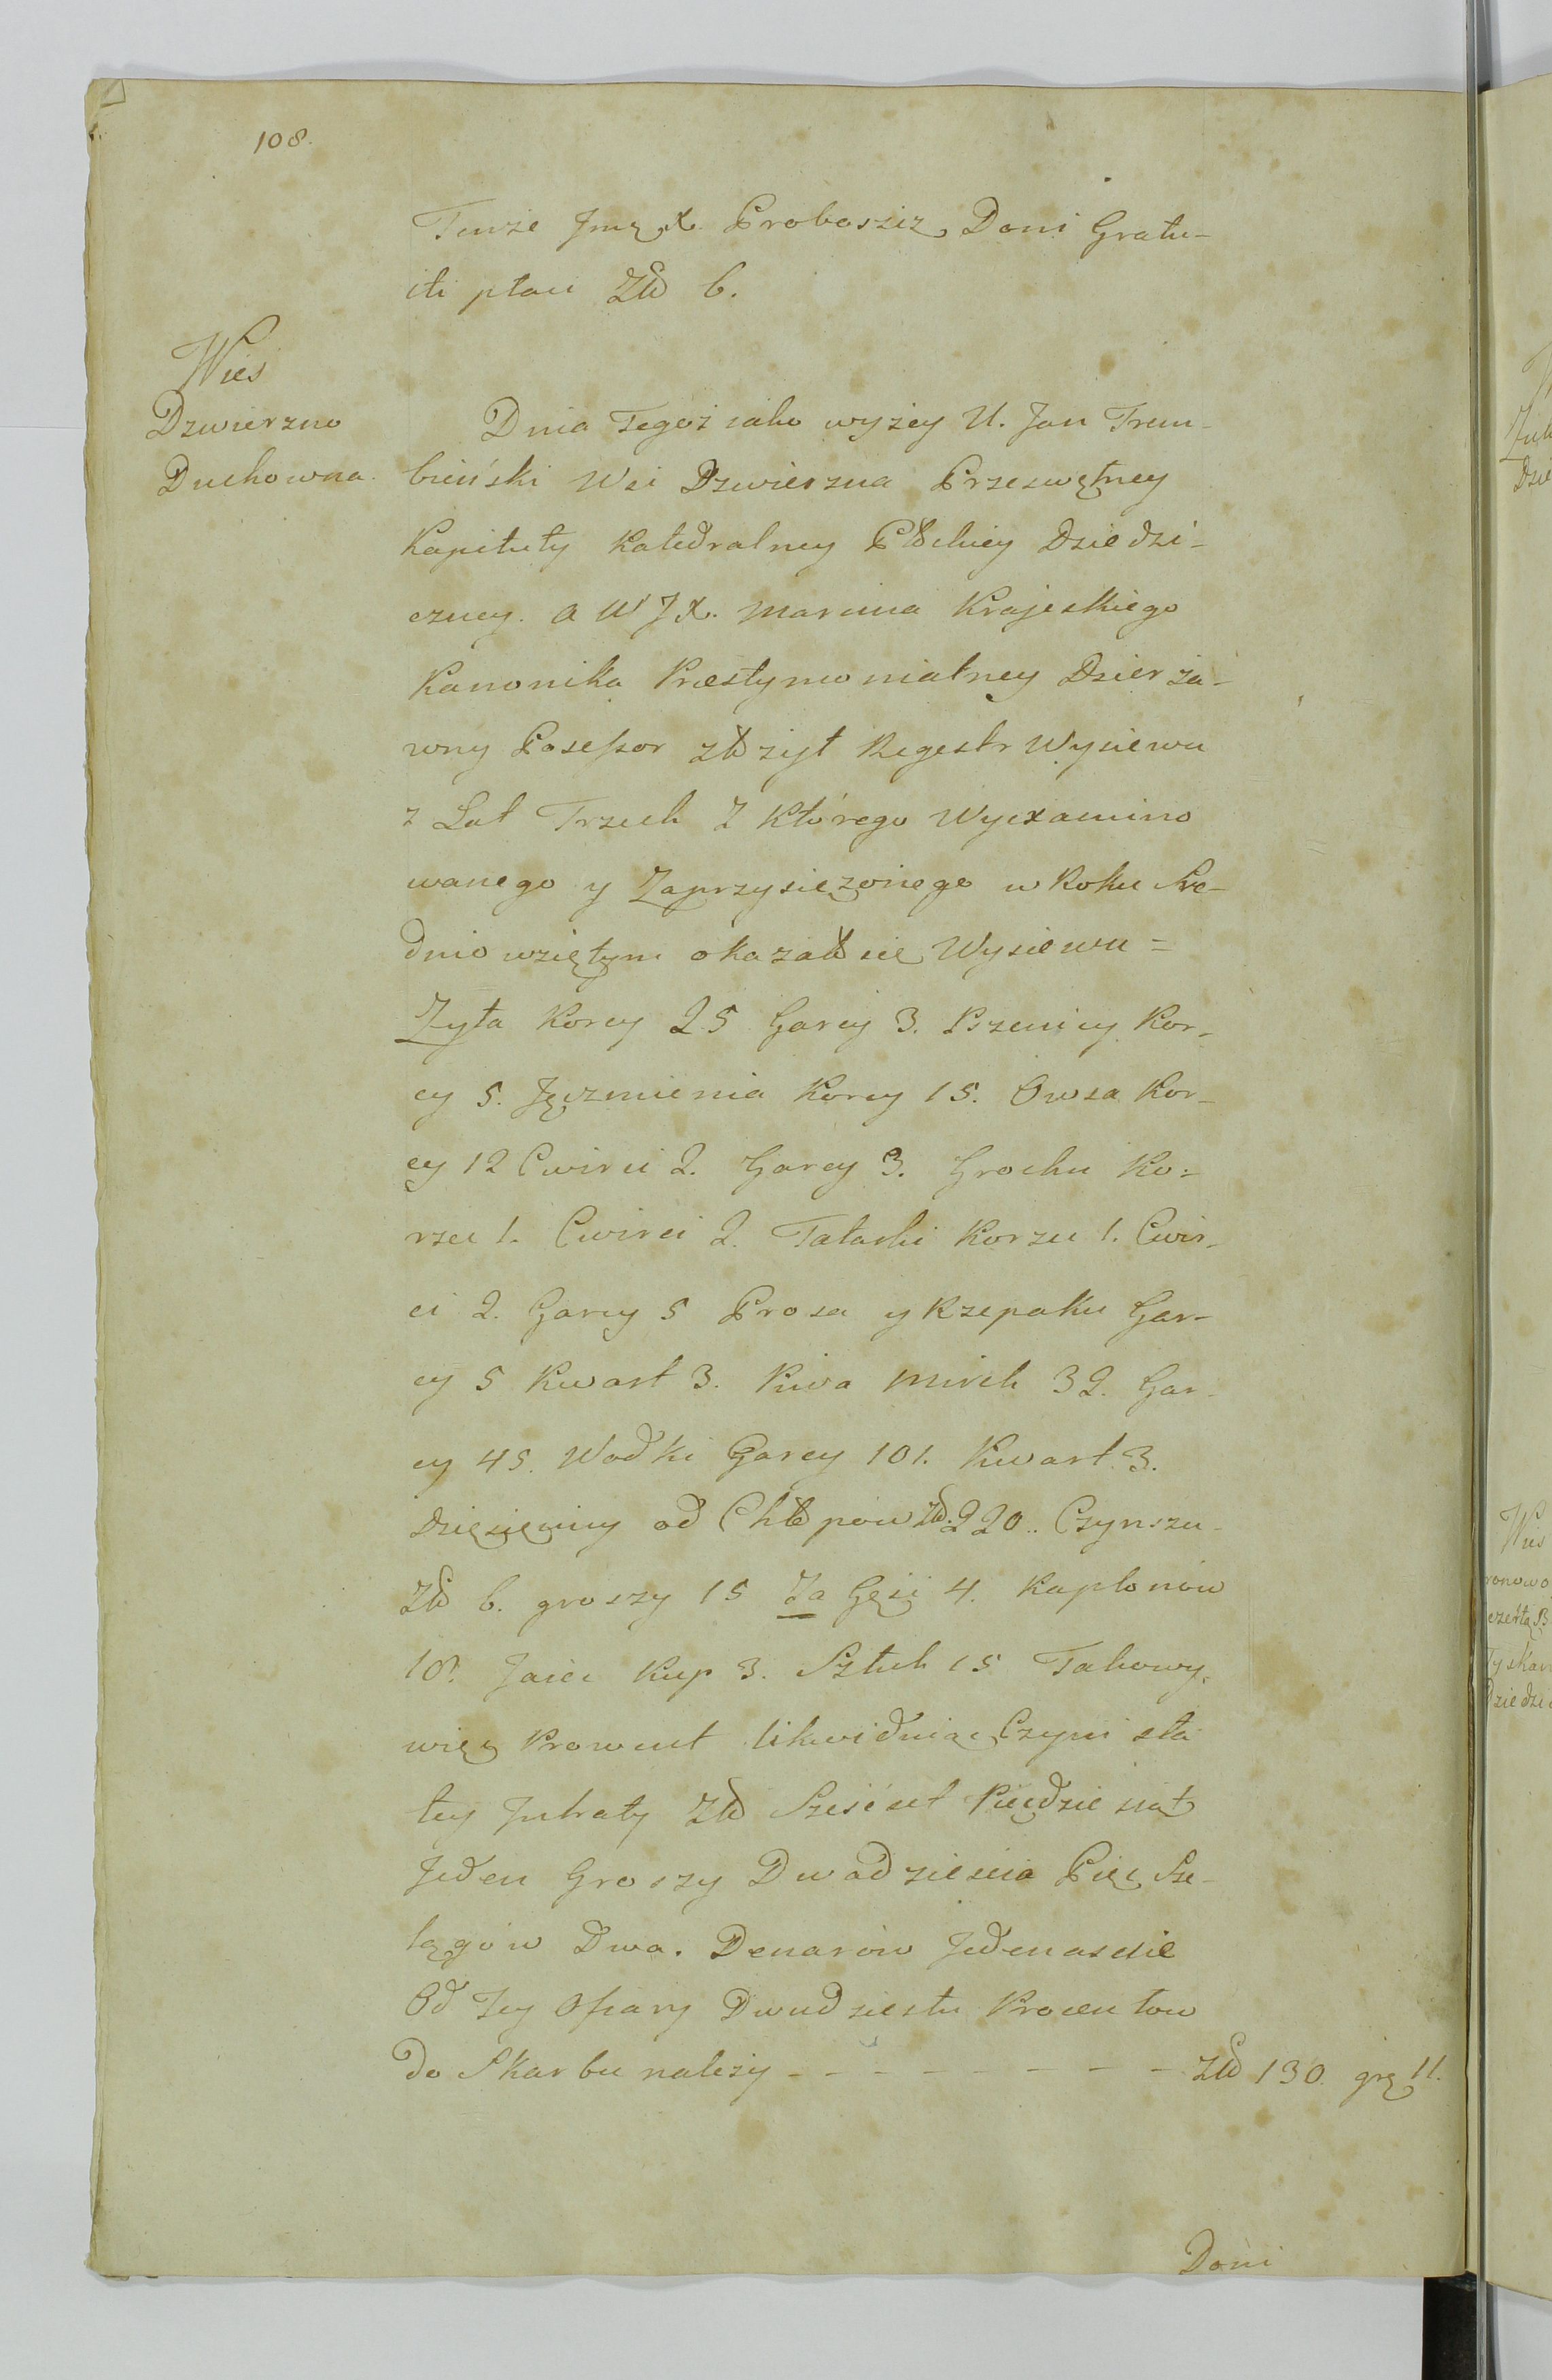 108.
Tenże Jmę X. Proboszcz Doni Gratu-
iti płaci Złł 6.
Wies
Dzwierzno
Duchowna.
Dnia Tegoż iako wyżey U. Jan Trem-
bieński Wsi Dzwierzna Prześwętney
Kapituły Katedralney Płłckiey Dziedzi-
czney. a W J X. Marcina Krajeskiego
Kanonika Præstymonialney Dzierża-
wny Posessor złłżył Regestr Wysiewu
z Lat Trzech Z którego Wyexamino
wanego y Zaprzysiężonego w Roku Sre-
dnio wziętym okazałł się Wysiewu =
Zyta Korcy 25 Garcy 3. Pszenicy Kor-
cy 5. Jęczmienia Korcy 15. Owsa Kor-
cy 12 Cwirci 2. Garcy 3. Grochu Ko-
rzec 1. Cwirci 2. Tatarki Korzec 1. Cwir-
ci 2. Garcy 5 Prosa y Rzepaku Gar-
cy 5 Kwart 3. Piwa Mirek 32. Gar-
cy 45. Wodki Garcy 101. Kwart 3.
Dzięsięciny od Chłłpow Złł. 220.. Czynszu
Złł 6. groszy 15 Za Gęsi 4. Kapłonów
10. Jaiec Kup 3. Sztuk 15 Takowy
więc Prowent likwiduiąc Czyni sta
łey Jntraty Złł Sześćset Pięcdziesiąt
Jeden Groszy Dwadziescia Pięc Sze-
lągów Dwa. Denarów Jedenascie
Od Tey Ofiary Dwudziestu Procentow
do Skarbu należy - - - - - - - - - Złł 130. grę 11.
Doni